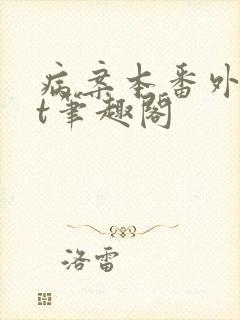 病案本番外
t笔趣阁
洛雷